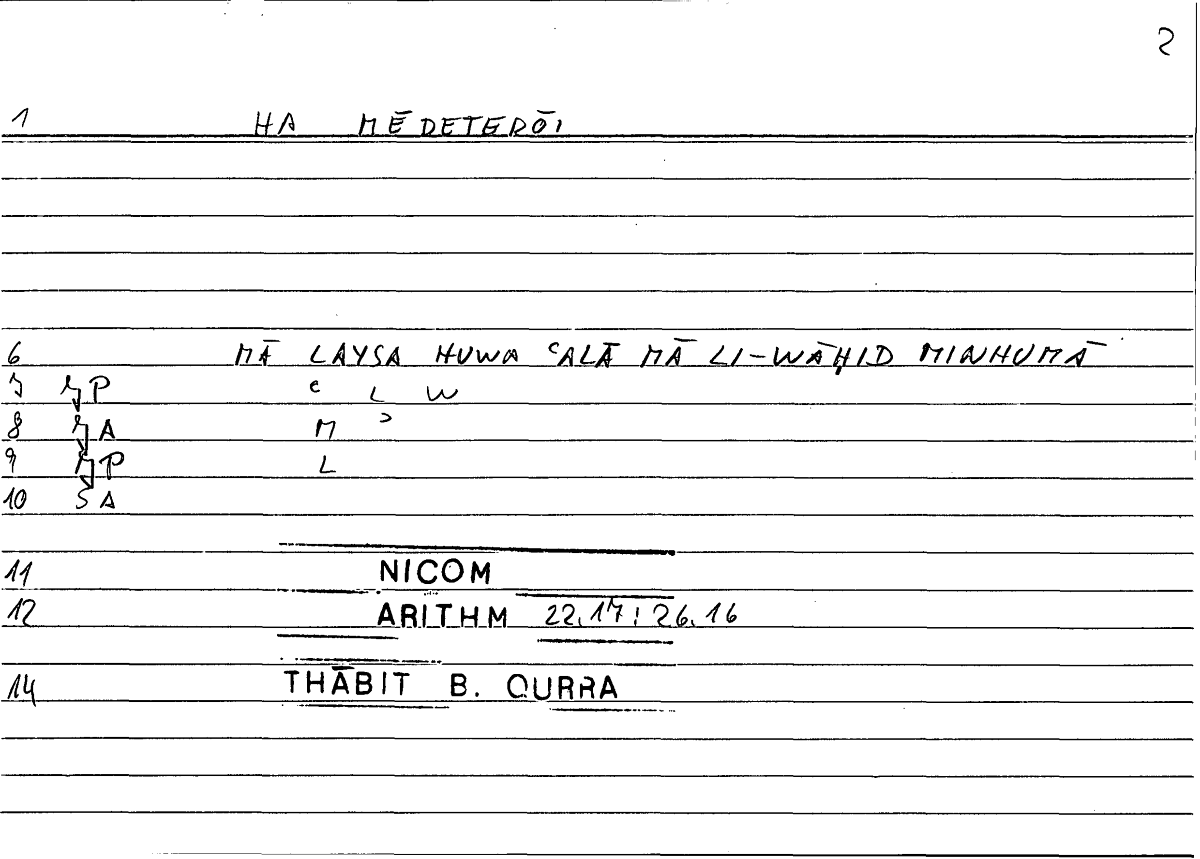 2
1 HA MĒDETERŌI
6 MĀ LAYSA HUWA ʿALĀ MĀ LI-WĀḤID MINHUMĀ
7 P ʿ L W
8 A M ʾ
9 P L
10 S A
11 NICOM
12 ARITHM 22.17; 26.16
14 THĀBIT B. QURRA